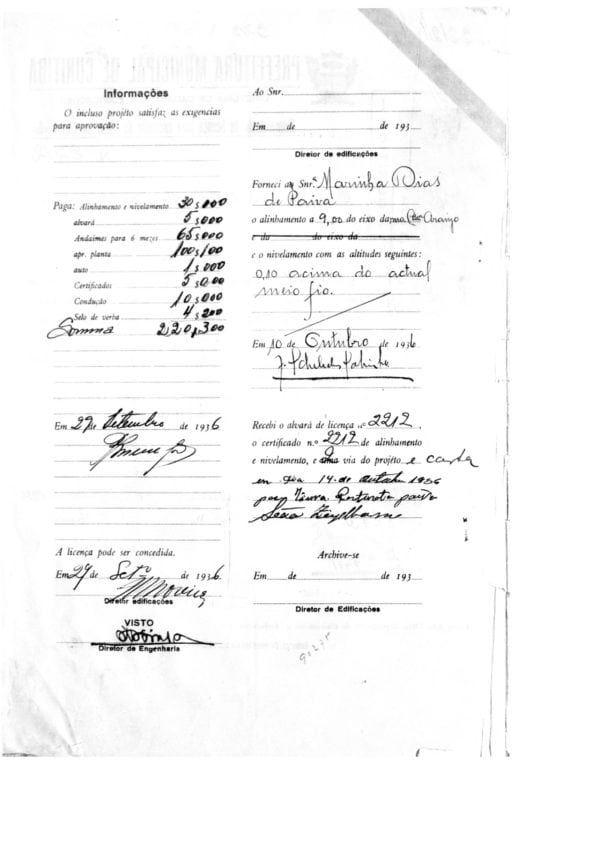 PREFEITURA MUNICIPAL DE CURITIBA
Informações
O incluso projéto satisfaz as exigencias
para aprovação:
Paga: Alinhamento e nivelamento 30$000
alvará 5$000
Andaimes para 6 mezes 65$000
apr. planta 100$100
auto 1$000
Certificados 5$000
Condução 10$000
Selo de verba 4$200
Somma 220,300
Em 29 de Setembro de 1936
A licença pode ser concedida.
Em 29 de Setº de 1936
Diretor edificações
VISTO
Diretor de Engenharia
Ao Snr.
Em de de 193
Diretor de edificações
Forneci ao Snr.ª Marinha Dias
de Paiva
o alinhamento a 9,00 do eixo da rua
e da do eixo da
e o nivelamento com as altitudes seguintes:
0,10 acima do actual
meio fio.
Em 10 de Outubro de 1936
Recebi o alvará de licença nº 2212,
o certificado n.º 2212 de alinhamento
e nivelamento, e via do projéto e carta
em dia 14 de 1936
Archive-se
Em de de 193
Diretor de Edificações